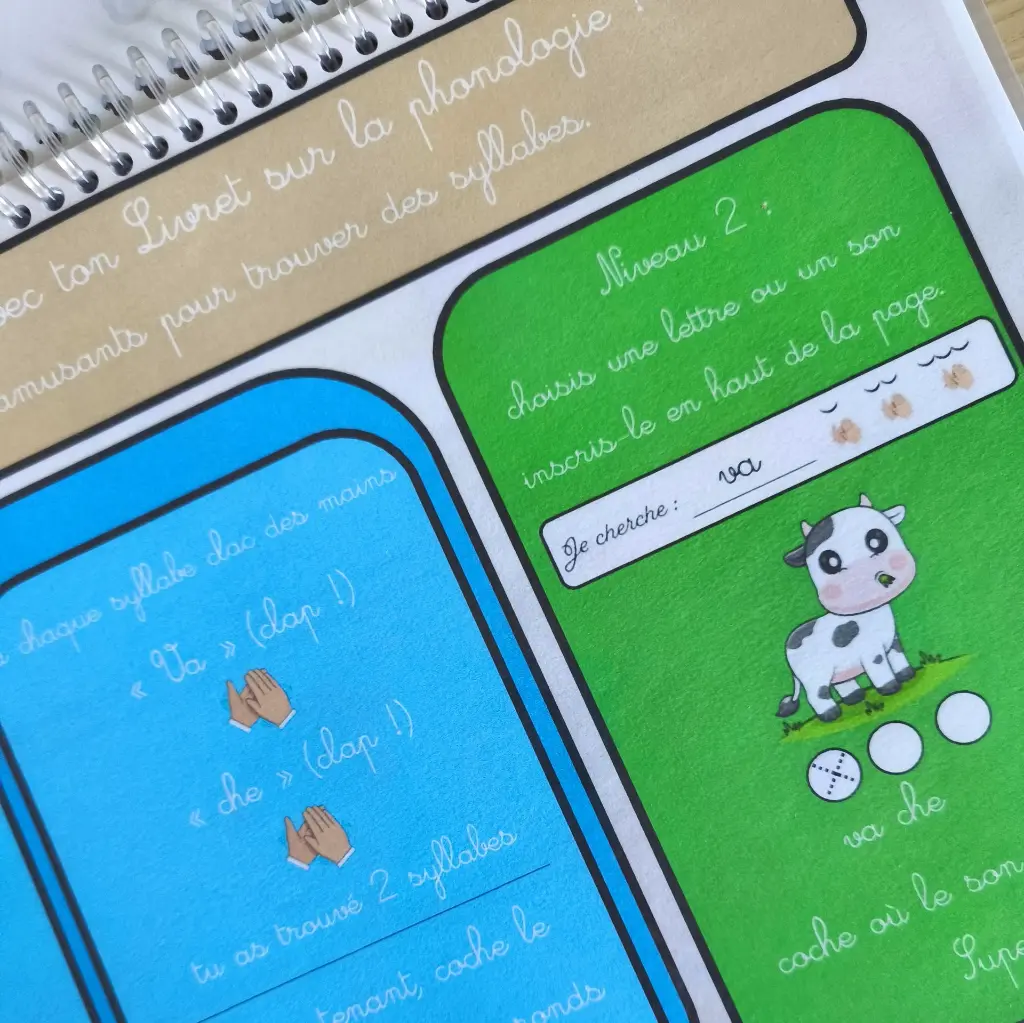 ton Livret sur la phonologie !
amusants pour trouver des syllabes.
chaque syllabe clac des mains
« Va » (clap !)
« che » (clap !)
tu as trouvé 2 syllabes
coche le
Niveau 2 :
choisis une lettre ou un son
inscris-le en haut de la page.
Je cherche : va
va che
coche où le son